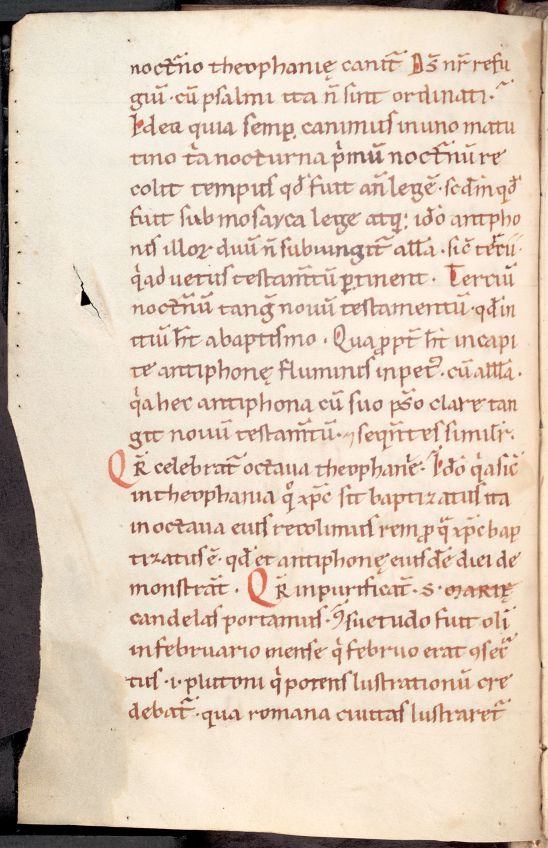 noct̄no theophanię canit̄ Ds̄ nr̄ refu
giū · cū psalmi ita n̄ sint ordinati ·
Idea quia semp canimus in uno matu
tino t̄a nocturna p̄mū noct̄nū re
colit tempus qd̄ fuit an̄ legē · scd̄m qd̄
fuit sub mosayca lege atq; idō antipho
nis illoꝝ duū n̄ subiungit̄ all̄a · sic̄ terciū ·
q̄ ad uetus testam̄tū ꝑtinent · Terciū
noct̄nū tanḡ nouū testamentū · qd̄ in
itiū h̄t a baptismo · Qua ꝓpt̄ h̄t in capi
te antiphonę fluminis inpet⁹ · cū all̄a ·
q̄a hec antiphona cū suo ps̄o clare tan
git nouū testam̄tū · ⁊ seq̄ntes similir̄ ·
Qr̄ celebrat̄ octaua theophanie · Idō q̄a sic̄
in theophania q̄r̄ xp̄c sit baptizatus ita
in octaua eius recolimus rem ꝓ q̄ xp̄c bap
tizatus ē · qd̄ et antiphonę eiusdē diei de
monstrāt · Qr̄ in purificat̄ · S · MARIĘ
candelas portamus · ꝯsuetudo fuit olī
in februario mense q̄ februo erat ꝯsec̄
tus · i · plutoni q̄ potens lustrationū cre
debat̄ · qua romana ciuitas lustraret̄